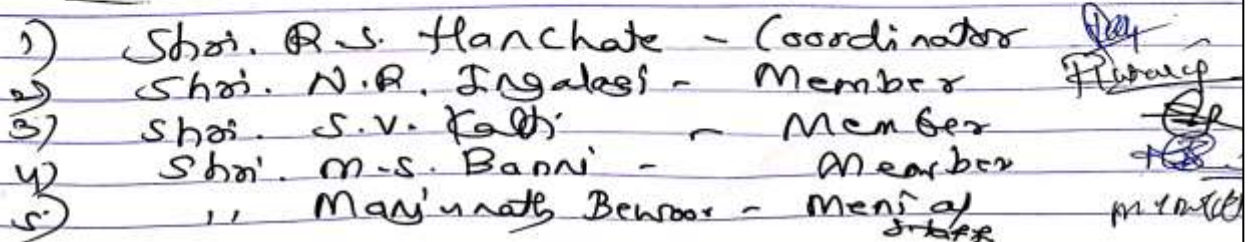 1) Shri. R.S. Hanchate - Coordinator
2) Shri. N.R. Ingalagi - Member
3) Shri. S.V. Kalti - Member
4) Shri. M.S. Banni - Member
5) ,, Manjunath Benoor - Menial staff